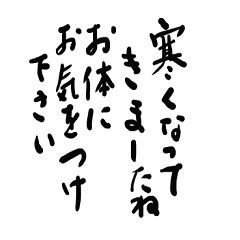 寒くなって
きましたね
お体に
お気をつけ
下さい